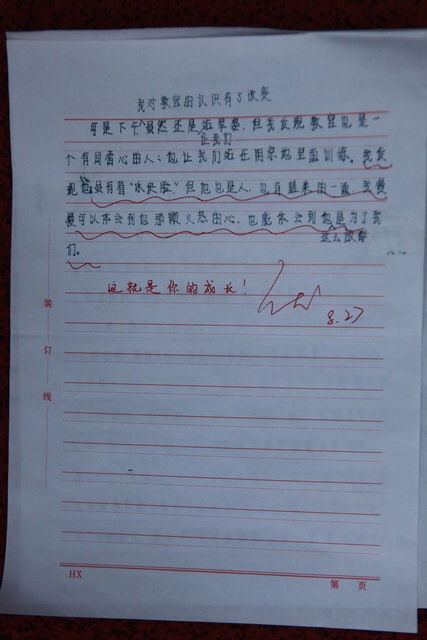 我对教官的认识有了改变
可是下午虽然还是站军姿，但我发现教官也是一
让我们
个有同情心的人：他让我们站在阴凉地里面训练。我发
现他虽有着“冰块脸”但他也是人，也有温柔的一面，我慢
慢可以体会到他那颗火热的心，也能体会到他是为了我
怎么做都
们。
这就是你的成长！
8.27
装
订
线
HX
第 页